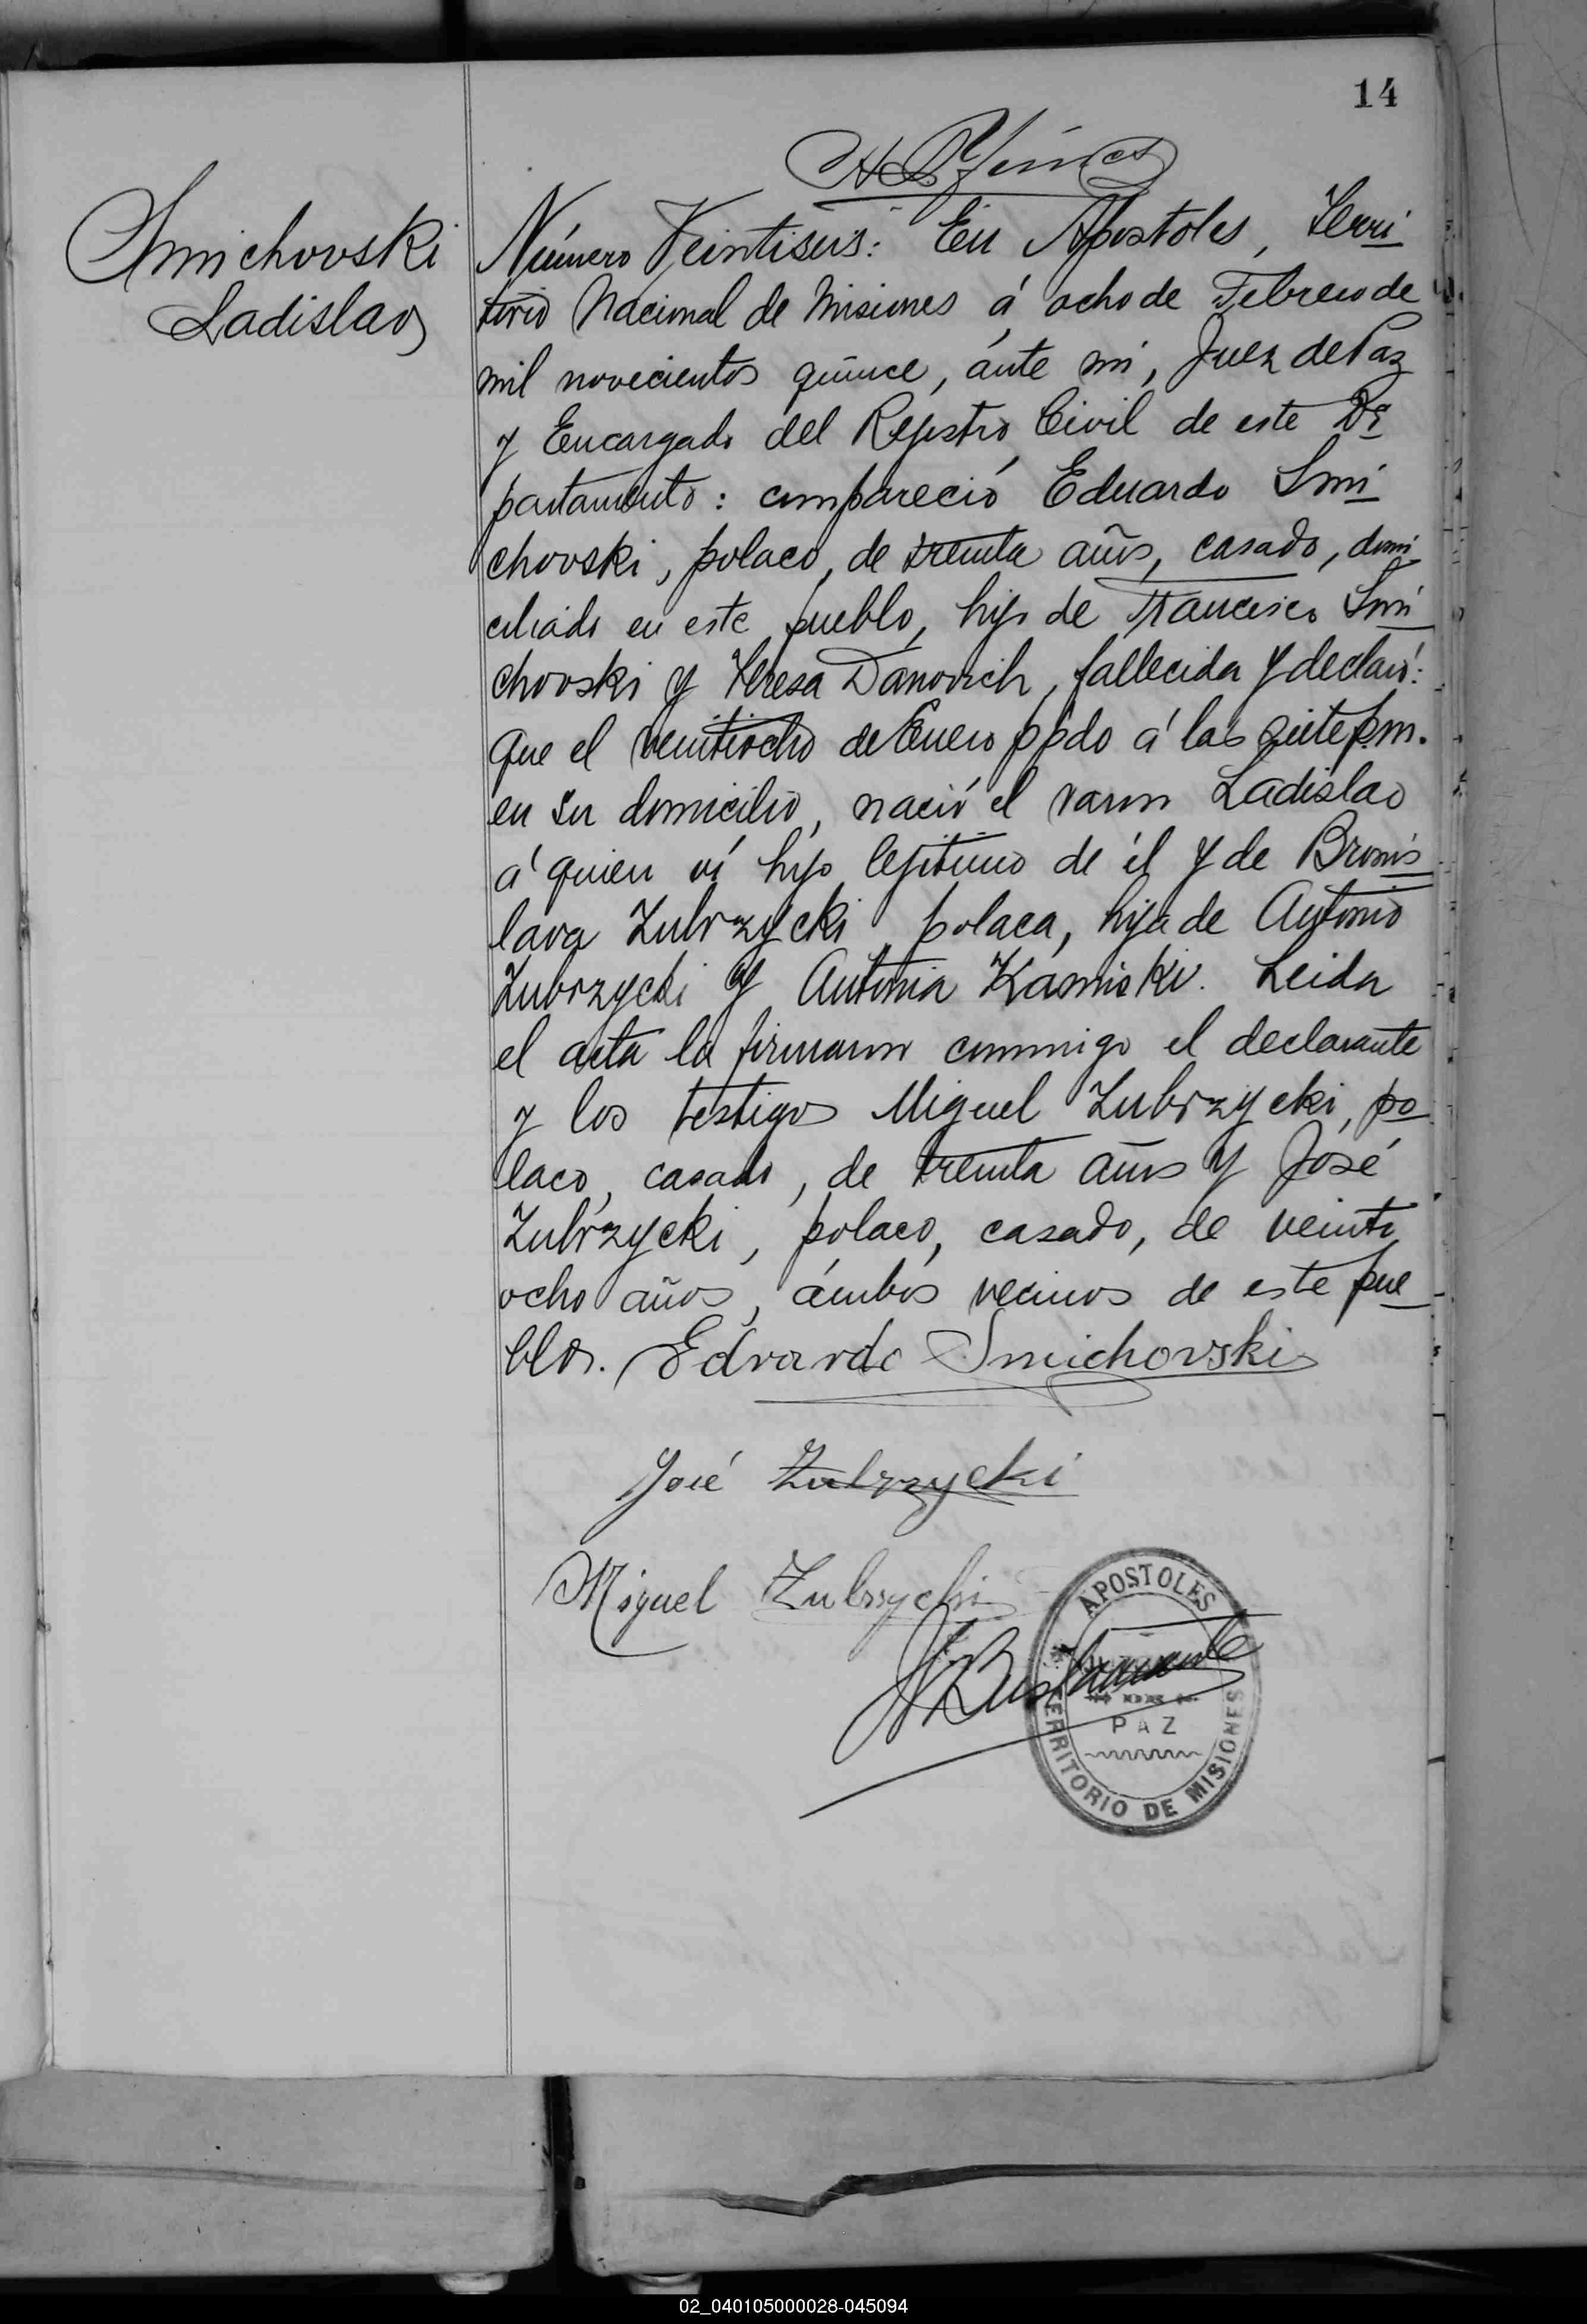 14
Smichovski
Ladislao
Número Veintiseis: En Apostoles, Terri
torio Nacional de Misiones á ocho de Febrero de
mil novecientos quince, ánte mi, Juez de Paz
y Encargado del Rejistro Civil de este De
partamento: compareció Eduardo Smi
chovski, polaco, de treinta años, casado, domi
ciliado en este pueblo, hijo de Francisco Smi
chovski y Teresa Danovich, fallecida y declaró:
que el veintiocho de Enero ppdo á las siete p.m.
en su domicilio, nació el varon Ladislao
á quien ví hijo lejitimo de él y de Bronis
lava Zubrzycki, polaca, hija de Antonio
Zubrzycki y Antonia Kamiski. Leida
el acta la firmaron conmigo el declarante
y los testigos Miguel Zubrzycki, po
laco, casado, de treinta años y José
Zubrzycki, polaco, casado, de veinti
ocho años, ámbos vecinos de este pue
blo. Edvardo Smichovski
José Zubrzycki
Miguel Zubrzycki
Bustamante
APOSTOLES
PAZ
TERRITORIO DE MISIONES
02_040105000028-045094